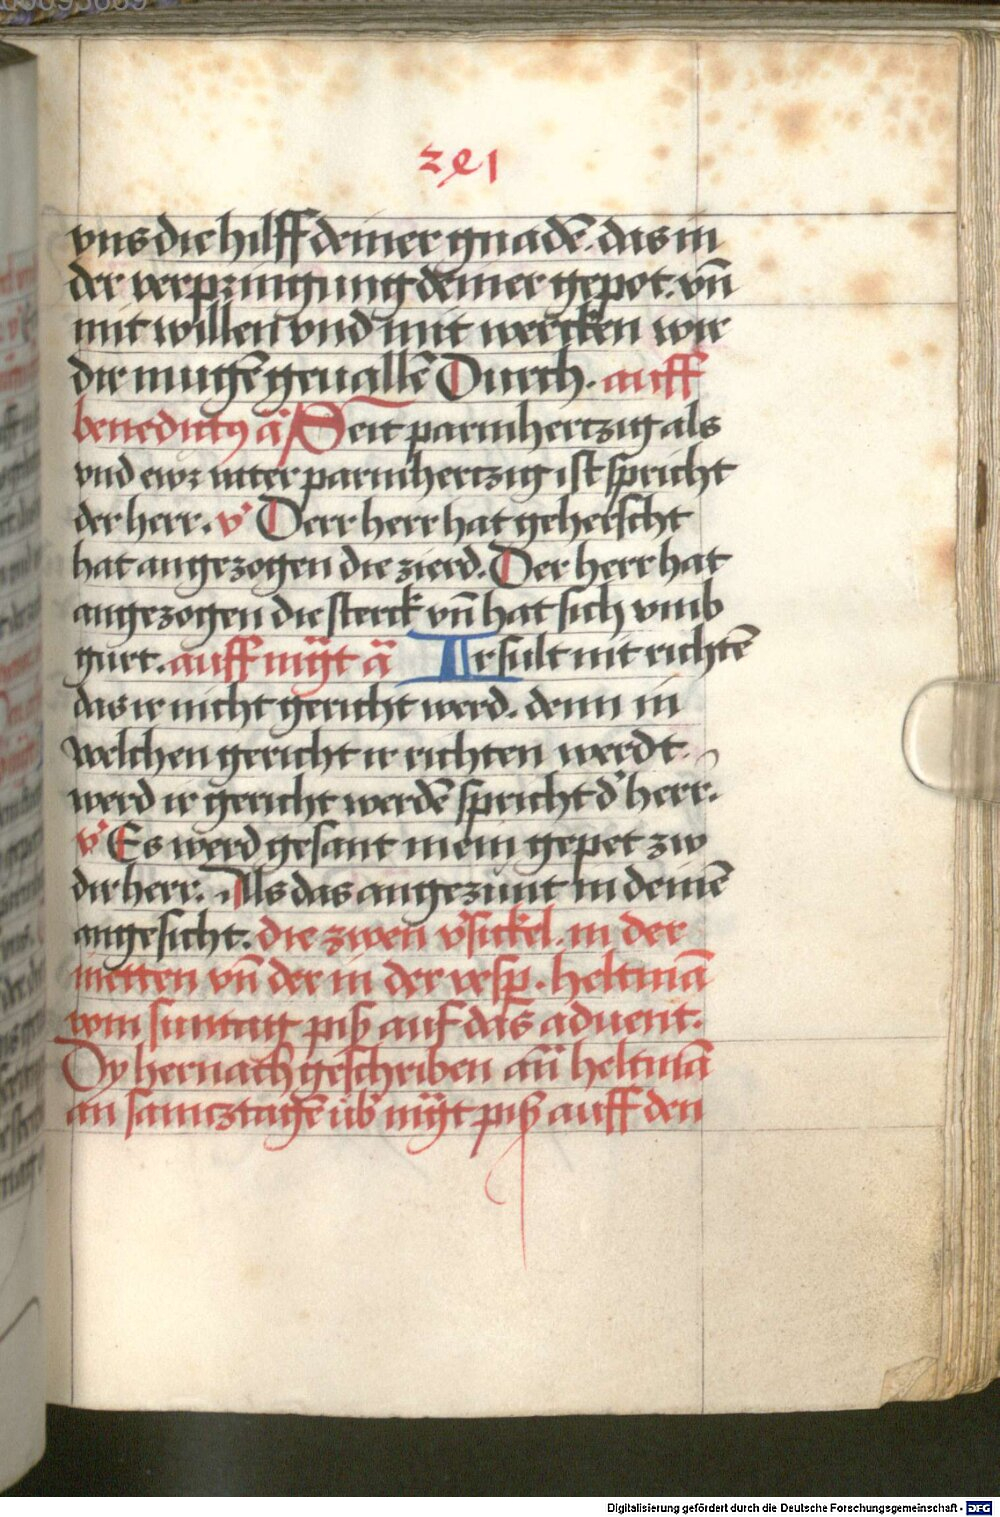 291
vns die hilff deiner gnadē. das in
der verpringung deiner gepot. vn̄
mit willen vnd mit wercken wir
dir mugē geuallē Durch. auff
benedictus ā Seit parmhertzig als
vnd ewr uater parmhertzig ist spricht
der herr. v̓ Derr herr hat geherscht
hat angezogen die zierd. Der herr hat
angezogen die sterck vn̄ hat sich vmb
gurt. auff mg̅t ā Ir sult nit richtē
das ir nicht gericht werd. denn in
welchen gericht ir richten werdt.
werd ir gericht werdē spricht d̓ herr.
v̓ Es werd gesant mein gepet zw
dir herr. Als das angezunt in deinē
angesicht. die zwen v̓sickel. in der
metten vn̄ der in der vesp̄. heltmā
vom suntag piß auf das aduent.
Dy hernach geschriben ān̄ heltmā
an samcztagē ub̓ mg̅t piß auff den
Digitalisierung gefördert durch die Deutsche Forschungsgemeinschaft - DFG